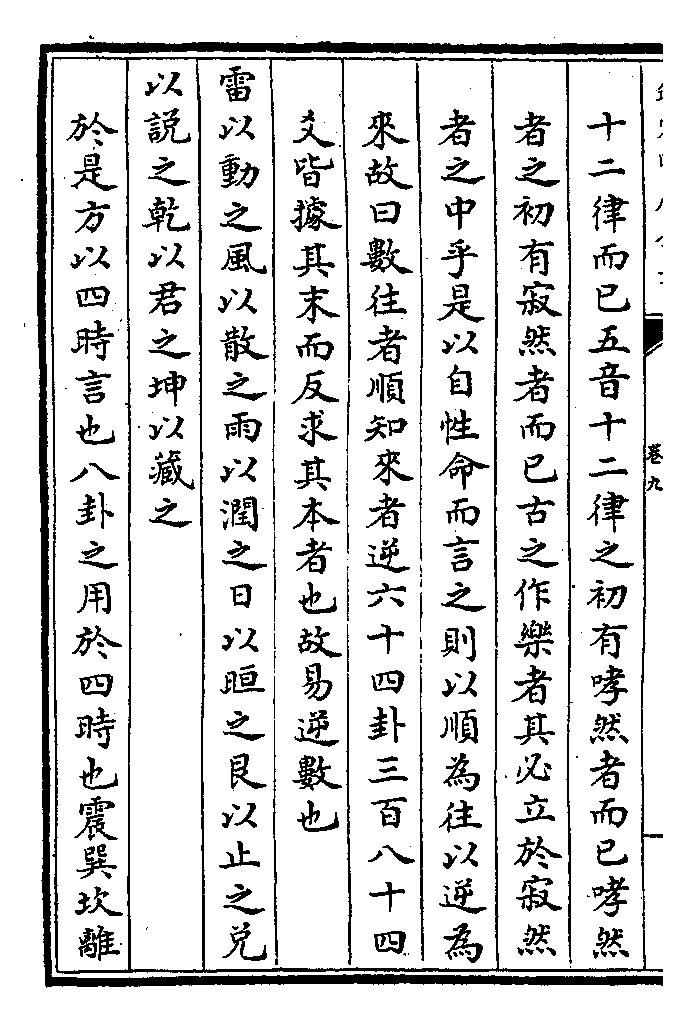 卷九
十二律而已五音十二律之初有哮然者而已哮然
者之初有寂然者而已古之作樂者其必立於寂然
者之中乎是以自性命而言之則以順為往以逆為
來故曰數往者順知來者逆六十四卦三百八十四
爻皆據其末而反求其本者也故易逆數也
雷以動之風以散之雨以潤之日以晅之艮以止之兌
以說之乾以君之坤以藏之
於是方以四時言也八卦之用於四時也震巽坎離